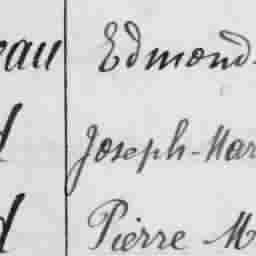 eau Edmond
d Joseph-Mar
d Pierre M